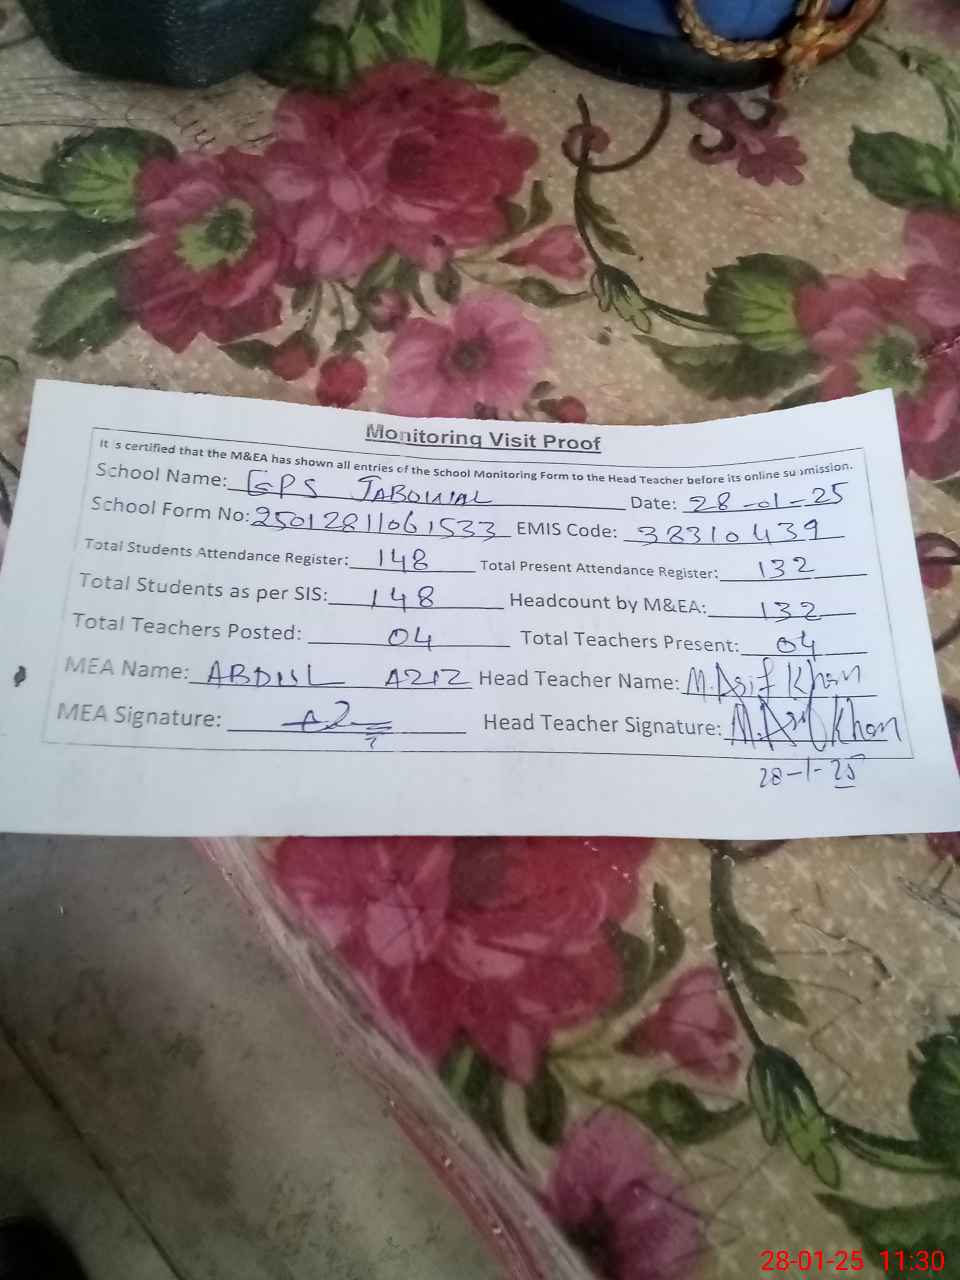 Monitoring Visit Proof
It s certified that the M&EA has shown all entries of the School Monitoring Form to the Head Teacher before its online su mission.
School Name: GPS Date: 28-01-25
School Form No: 25012811061533 EMIS Code: 38310439
Total Students Attendance Register: 148 Total Present Attendance Register: 132
Total Students as per SIS: 148 Headcount by M&EA: 132
Total Teachers Posted: 04 Total Teachers Present: 04
MEA Name: ABDUL AZIZ Head Teacher Name: M.Asif Khan
MEA Signature: Head Teacher Signature: M.Asif Khan
28-1-25
28-01-25 11:30